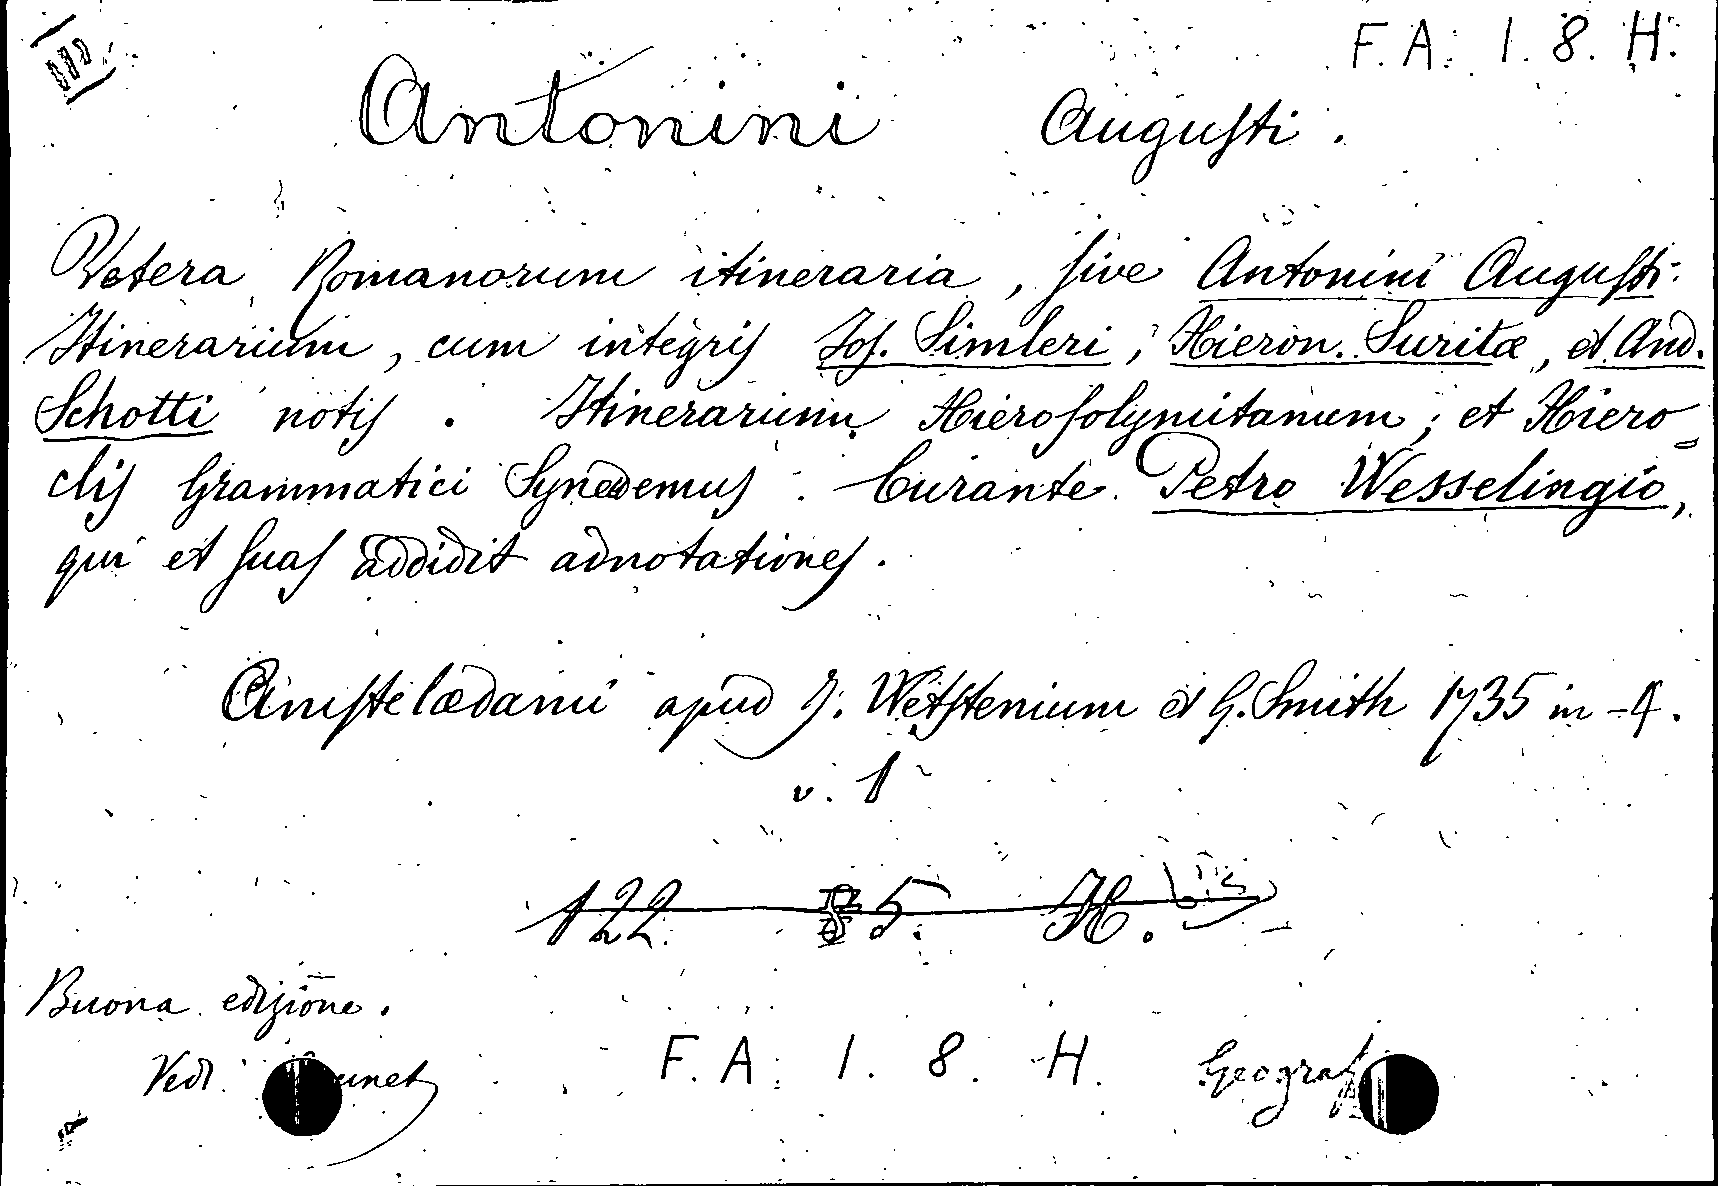 F. A. 1. 8. H.
Antonini Augusti.
Vetera Romanorum itineraria, sive Antonini Augusti
Itinerarium, cum integris Jos. Simleri, Hieron. Suritæ, et And.
Schotti notis. Itinerarium Hierosolymitanum; et Hiero=
clis Grammatici Synedemus. Curante Petro Wesselingio,
qui et suas addidit adnotationes.
Amstelædami apud J. Wetstenium et G. Smith 1735 in-4.
v. 1
122. 5. H. bis
Buona edizione.
Vedi
F. A. 1. 8. H.